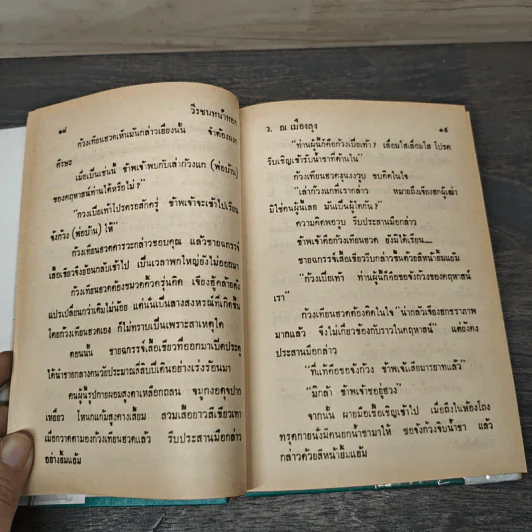 ๑๘
วีรชนหน้าหยก
ก้วงเทียนฮวดเห็นมันกล่าวเยี่ยงนั้น จำต้องผงก
ศีรษะ
เมื่อเป็นเช่นนี้ ข้าพเจ้าพบกับเล่าก้วงแก (พ่อบ้าน)
ของคฤหาสน์ท่านได้หรือไม่ ?"
"ก้วงเบี้ยเท้าโปรดรอสักครู่ ข้าพเจ้าจะเข้าไปเรียน
จังก้วง (พ่อบ้าน) ให้"
ก้วงเทียนฮวดคารวะกล่าวขอบคุณ แล้วชายฉกรรจ์
เสื้อเขียวจึงย้อนกลับเข้าไป เป็นเวลาพักใหญ่ยังไม่ออกมา
ก้วงเทียนฮวดต้องขมวดคิ้วครุ่นคิด เจียงฮู้คล้ายดั่ง
แปรเปลี่ยนกว่าเดิมไม่น้อย แต่นั่นเป็นลางสังหรณ์ที่เกิดขึ้น
โดยก้วงเทียนฮวดเอง ก็ไม่ทราบเป็นเพราะสาเหตุใด
ตอนนั้น ชายฉกรรจ์เสื้อเขียวที่ออกมาเปิดประตู
ได้นำชายกลางคนวัยประมาณสี่สิบปีเดินอย่างเร่งร้อนมา
คนผู้นี้รูปกายผอมสูงตาเหลือกถลน จมูกงองุ้มปาก
เหยี่ยว โหนกแก้มสูงคางเสี้ยม สวมเสื้อยาวสีเขียวเทา
เมื่อกวาดตามองก้วงเทียนฮวดแล้ว รีบประสานมือกล่าว
อย่างยิ้มแย้ม
ว. ณ เมืองลุง
๑๙
"ท่านผู้นี้ก็คือก้วงเบี้ยเท้า ? เลื่อมใสเลื่อมใส โปรด
รีบเชิญเข้ารับน้ำชาที่ด้านใน"
ก้วงเทียนฮวดงุนงงวูบ ขบคิดในใจ
"เล่าก้วงแกที่เรากล่าว หมายถึงเจียงฮกผู้เฒ่า
มิใช่คนผู้นี้เลย มันเป็นผู้ใดกัน ?"
ความคิดพอวูบ รีบประสานมือกล่าว
ข้าพเจ้าคือก้วงเทียนฮวด ยังมิได้เรียน.....
ชายฉกรรจ์เสื้อเขียวรีบกล่าวขึ้นด้วยสีหน้ายิ้มแย้ม
"ก้วงเบี้ยเท้า ท่านผู้นี้คือขอจังก้วงของคฤหาสน์
เรา"
ก้วงเทียนฮวดต้องคิดในใจ "น่ากลัวเจียงฮกชราภาพ
มากแล้ว จึงไม่เกี่ยวข้องกับราวในคฤหาสน์" แต่ยังคง
ประสานมือกล่าว
"ที่แท้คือขอจังก้วง ข้าพเจ้าเสียมารยาทแล้ว"
"มิกล้า ข้าพเจ้าขออยู่ฮวง"
จากนั้น ผายมือเชื้อเชิญเข้าไป เมื่อถึงในห้องโถง
ทรุดกายนั่งมีคนยกน้ำชามาให้ ขอจังก้วงจิบน้ำชา แล้ว
กล่าวด้วยสีหน้ายิ้มแย้ม